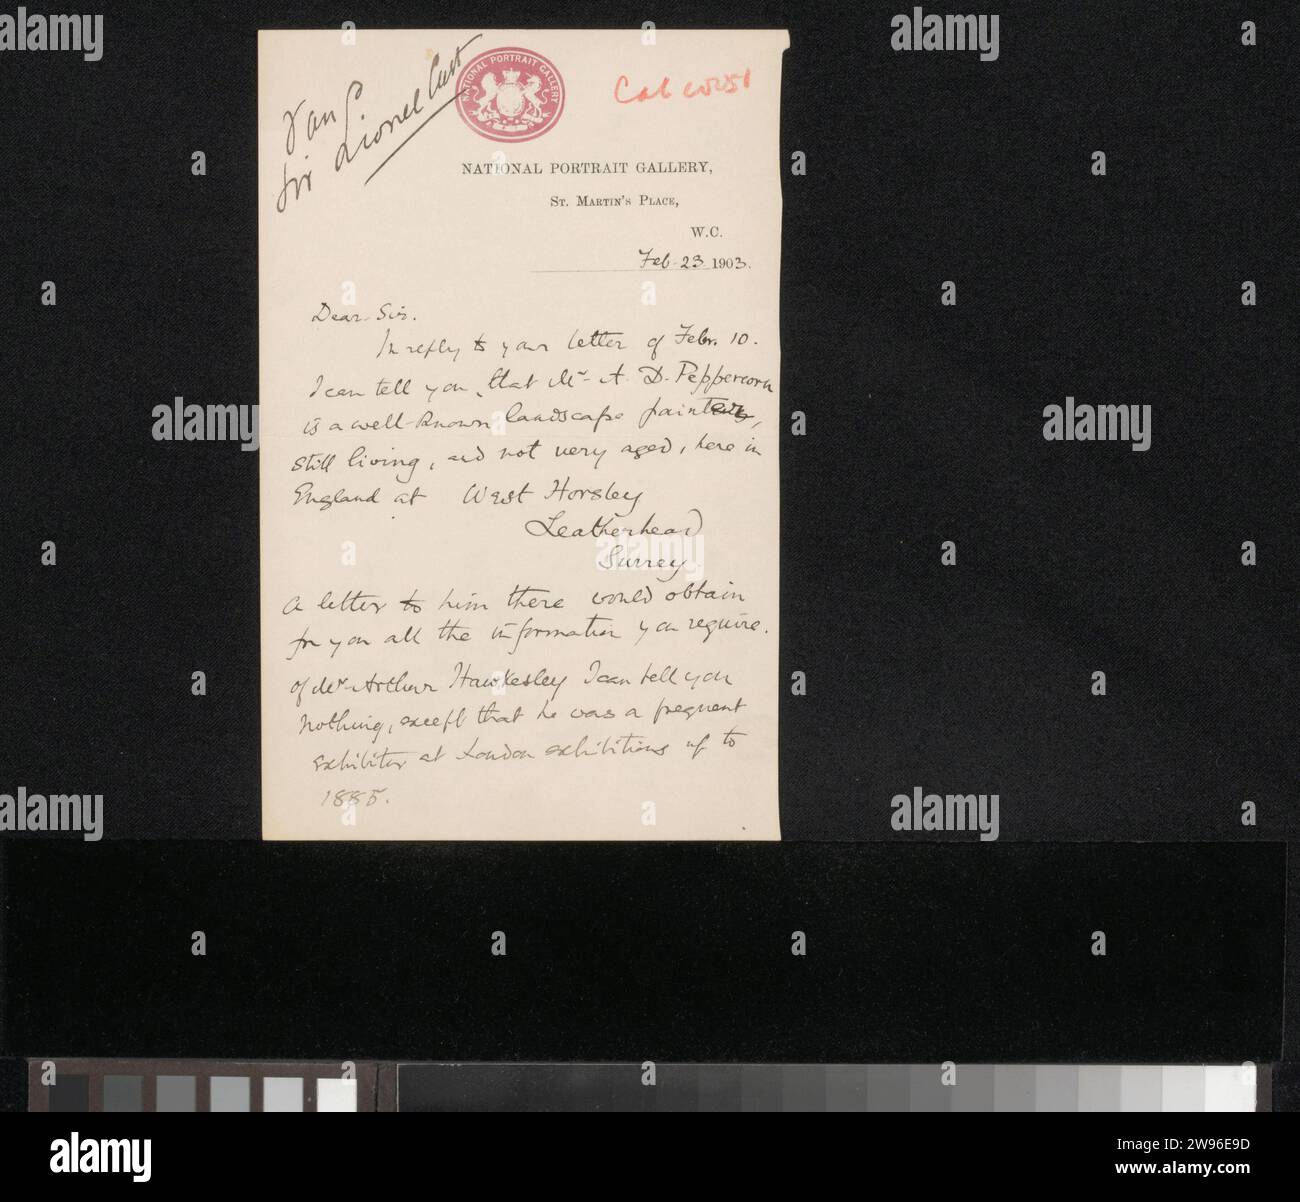 Van
Sir Lionel Cust
NATIONAL PORTRAIT GALLERY
NATIONAL PORTRAIT GALLERY,
St. Martin's Place,
W.C.
Feb. 23 1903.
Dear Sir.
In reply to your letter of Febr. 10.
I can tell you, that Mr A. D. Peppercorn
is a well-known landscape painter,
still living, and not very aged, here in
England at West Horsley
Leatherhead
Surrey.
A letter to him there would obtain
for you all the information you require.
of Mr Arthur Hawkesley I can tell you
nothing, except that he was a frequent
exhibitor at London exhibitions up to
1885.
alamy
Image ID: 2W96E9D
www.alamy.com